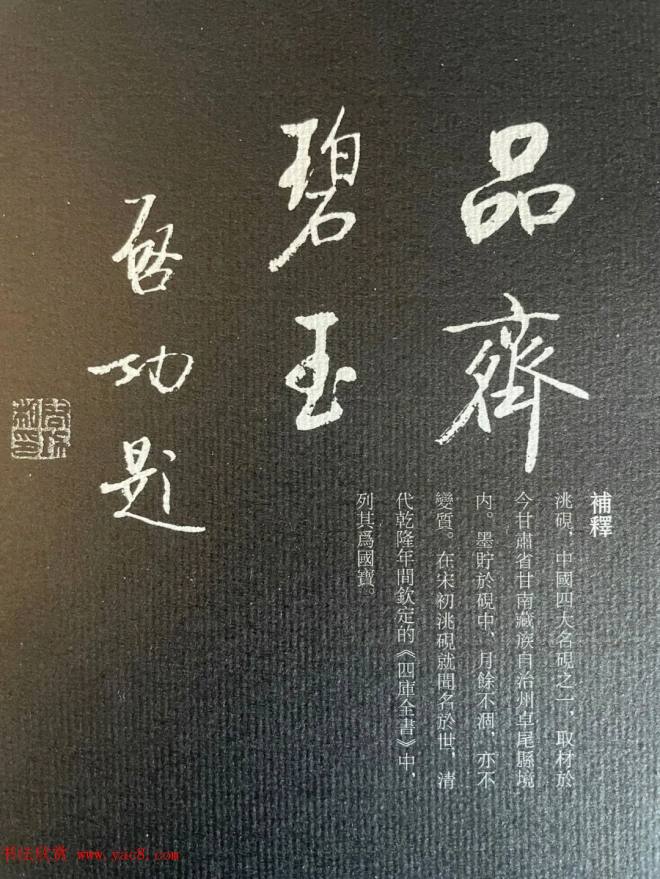 品齊
碧玉
启功題
補釋
洮硯，中國四大名硯之一，取材於
今甘肅省甘南藏族自治州卓尾縣境
内。墨貯於硯中，月餘不涸，亦不
變質。在宋初洮硯就聞名於世，清
代乾隆年間欽定的《四庫全書》中，
列其爲國寶。
书法欣赏 www.yac8.com